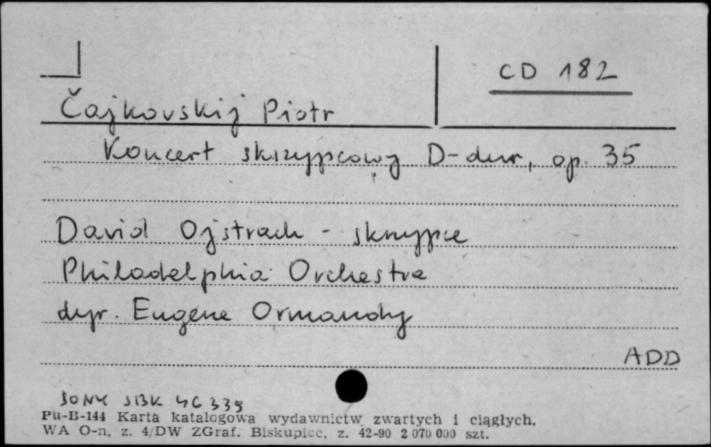 CD 182
Čajkovskij Piotr
Koncert skrzypcowy D-dur, op. 35
David Ojstrach - skrzypce
Philadelphia Orchestra
dyr. Eugene Ormandy
ADD
SONY SBK 46339
Pu-B-144 Karta katalogowa wydawnictw zwartych i ciągłych.
WA O-n, z. 4/DW ZGraf. Biskupiec, z. 42-90 2 070 000 szt.